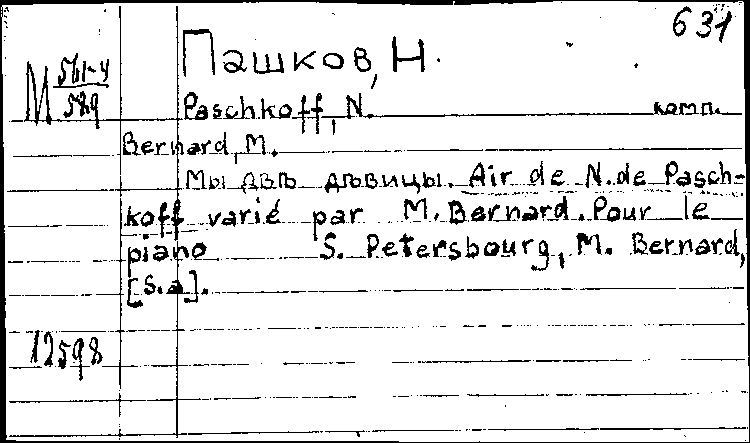 631
Пашков, Н.
М 561-4/589
Paschkoff, N. комп.
Bernard, M.
Мы двѣ дѣвицы. Air de N. de Pasch-
koff varié par M. Bernard. Pour le
piano S. Petersbourg, M. Bernard,
[S.a].
12598